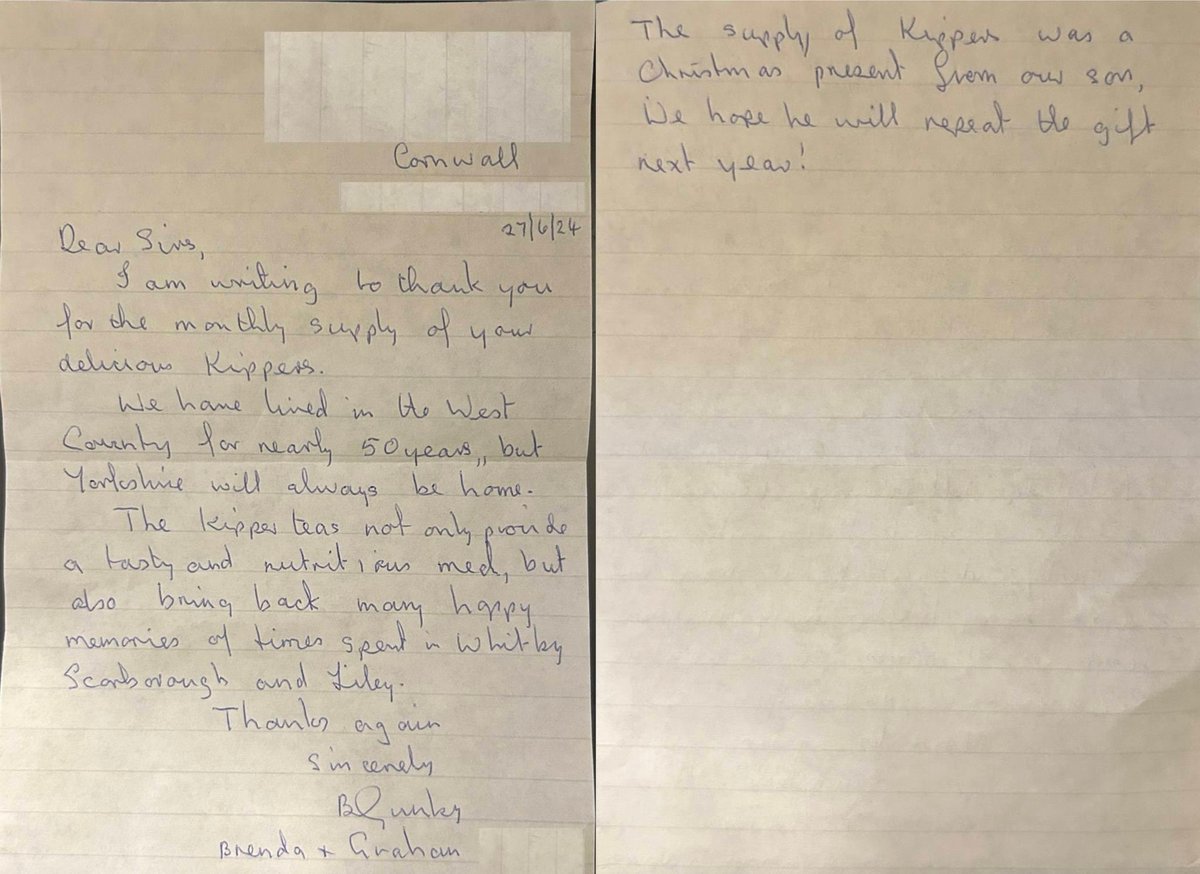 Cornwall
27/6/24
Dear Sirs,
I am writing to thank you
for the monthly supply of your
delicious Kippers.
We have lived in the West
Country for nearly 50 years,, but
Yorkshire will always be home.
The Kipper teas not only provide
a tasty and nutritious meal, but
also bring back many happy
memories of times spent in Whitby
Scarborough and Filey.
Thanks again
Sincerely
Brenda + Graham
The supply of Kippers was a
Christmas present from our son,
We hope he will repeat the gift
next year!